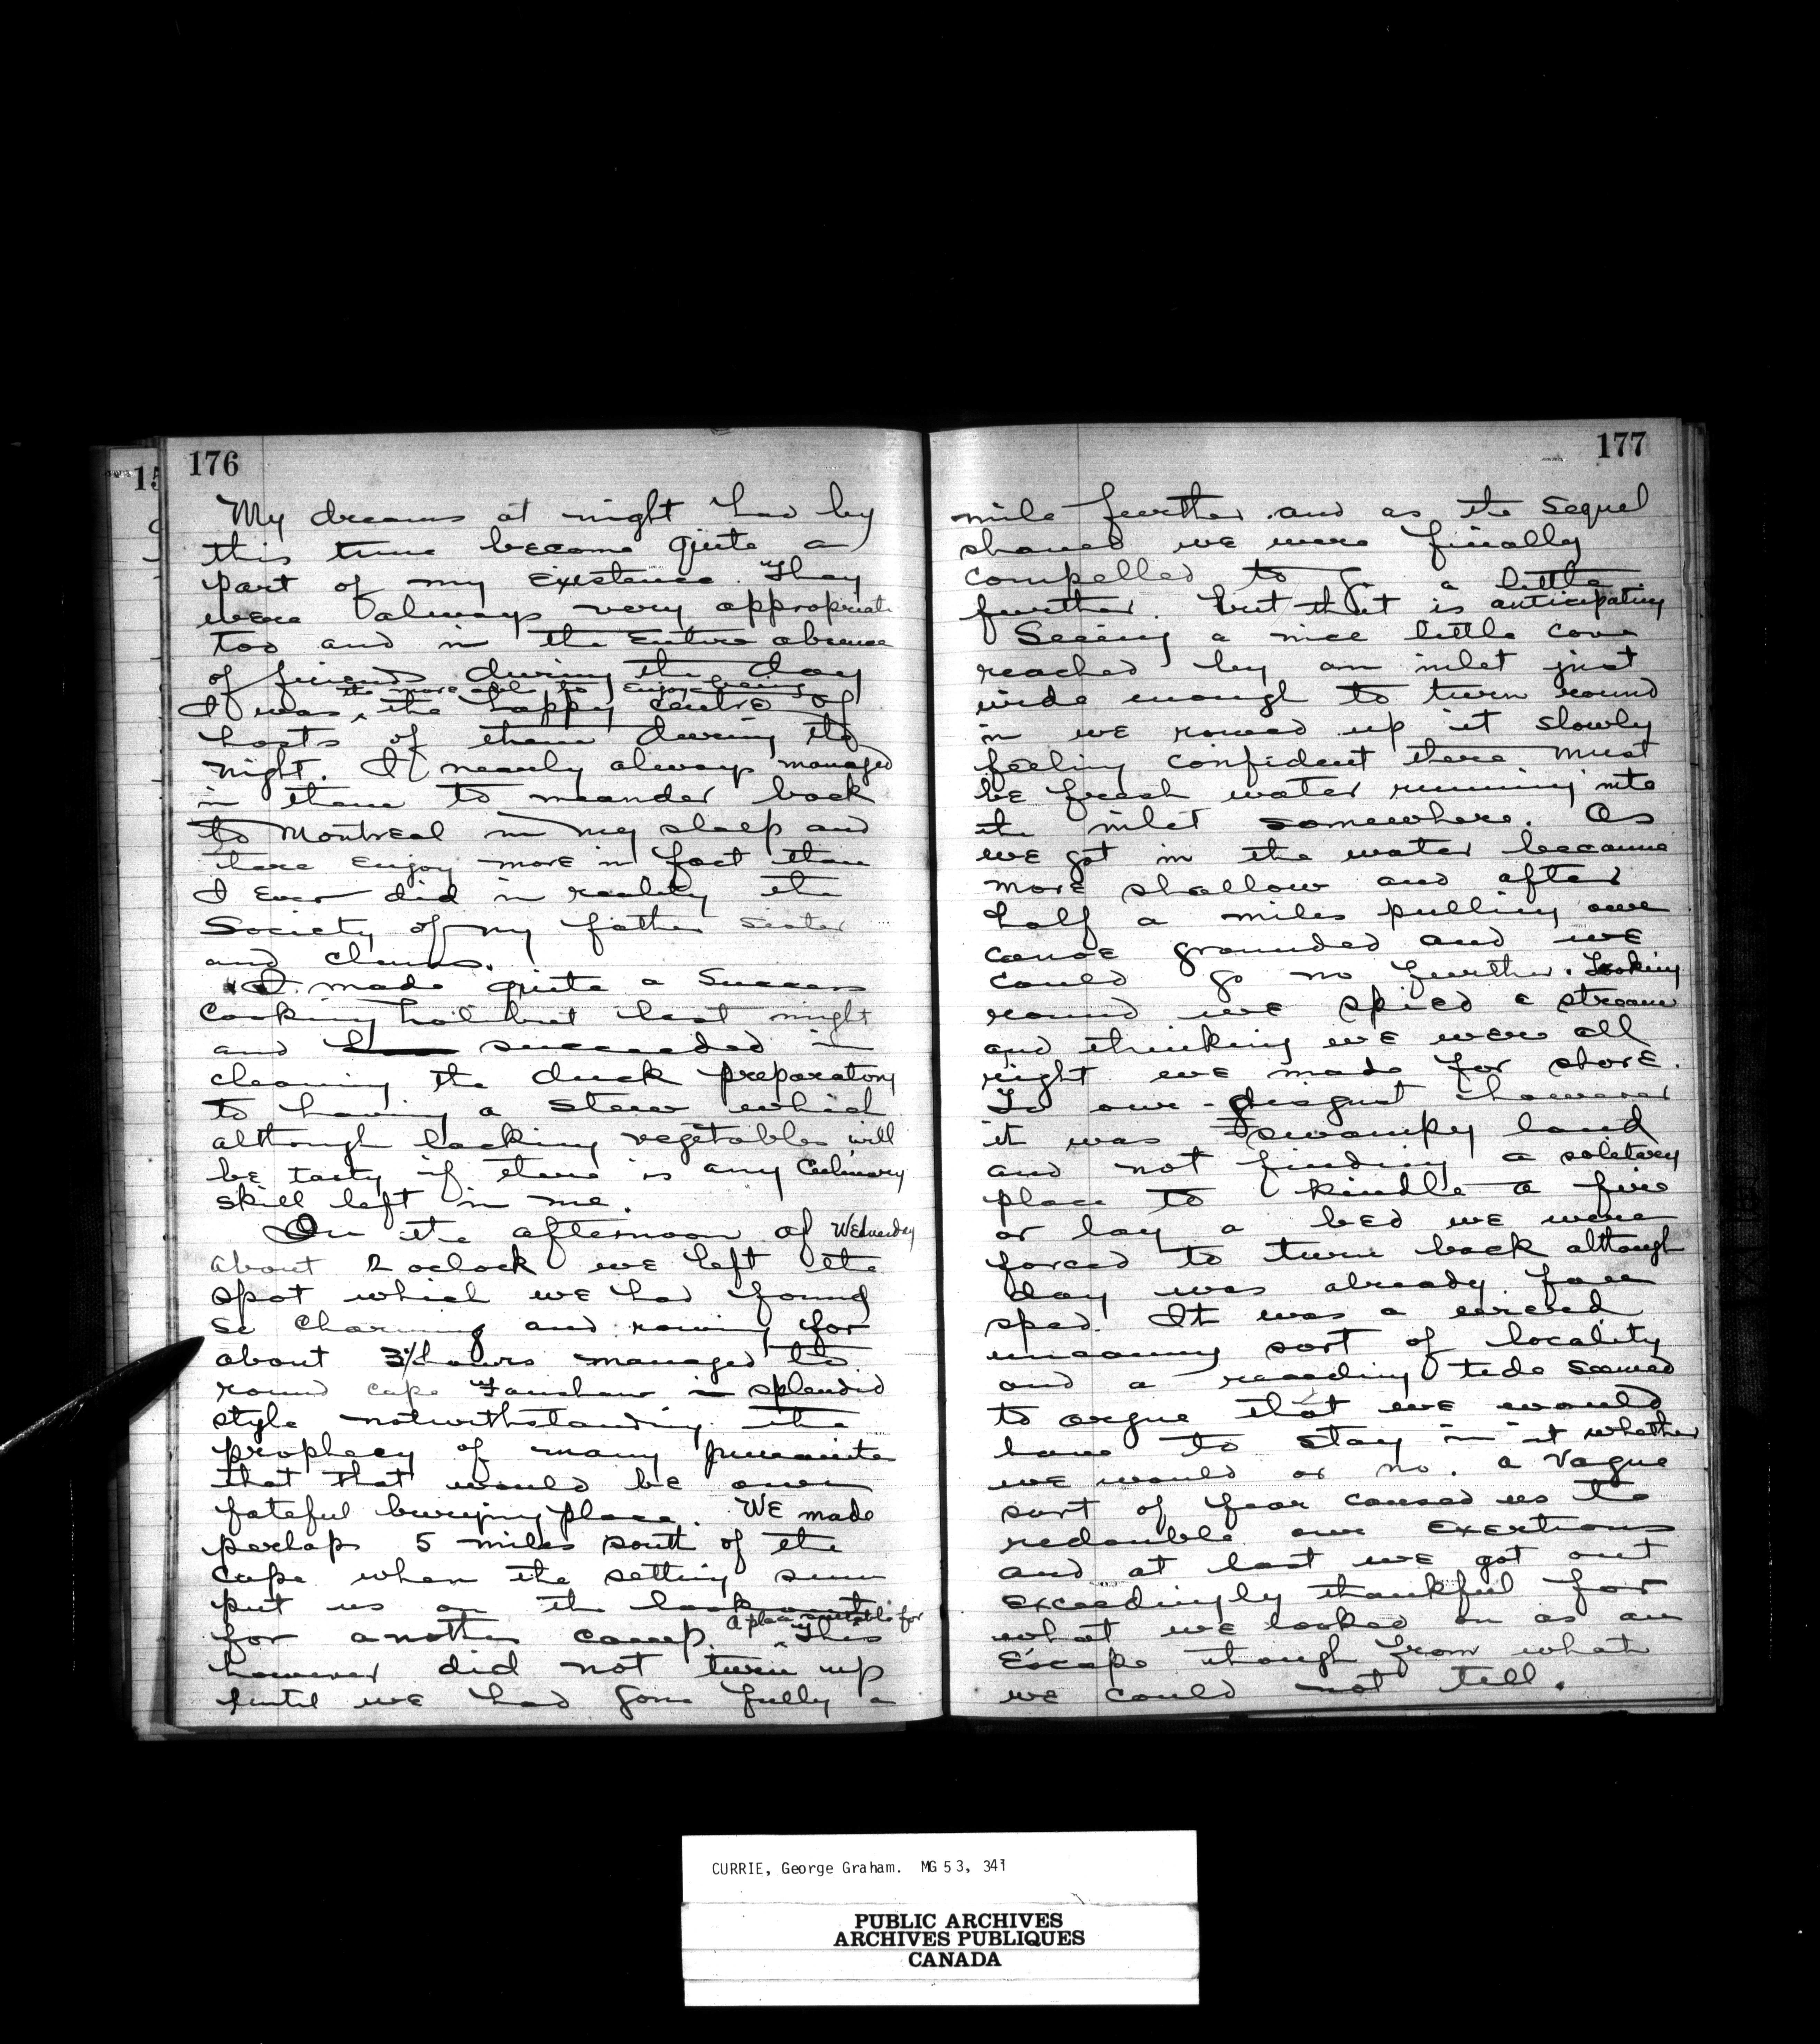 176
My dreams at night had by
this time become quite a
part of my existence. They
were always very appropriate
too and in the entire absence
of friends during the day
the more able to enjoy being
I was the happy centre of
hosts of them during the
night. I nearly always managed
in them to meander back
to Montreal in my sleep and
there enjoy more in fact than
I ever did in reality the
Society of my father sister
and chums.
I made quite a Success
Cooking halibut last night
and succeeded in
cleaning the duck preparatory
to having a stew which
although lacking vegetables will
be tasty if there is any Culinary
skill left in me.
On the afternoon of Wednesday
about 2 oclock we left the
spot which we had found
so Charming and rowing for
about 3½ hours managed to
round cape Fanshaw in splendid
style notwithstanding the
prophecy of many Juneauites
that that would be our
fateful burying place. We made
perhaps 5 miles south of the
Cape when the setting sun
put us on the lookout
for another camp. A place suitable for
This
however did not turn up
until we had gone fully a
177
mile further and as the Sequel
showed we were finally
compelled to go a little
further but that is anticipating
Seeing a nice little cove
reached by an inlet just
wide enough to turn round
in we rowed up it slowly
feeling confident there must
be fresh water running into
the inlet somewhere. As
we got in the water became
more shallow and after
half a miles pulling our
canoe grounded and we
could go no further. Looking
round we spied a stream
and thinking we were all
right we made for shore.
To our disgust however
it was swampy land
and not finding a solitary
place to kindle a fire
or lay a bed we were
forced to turn back although
day was already far
sped. It was a weird
uncanny sort of locality
and a receding tide seemed
to argue that we would
have to stay in it whether
we would or no. A vague
sort of fear caused us to
redouble our exertions
and at last we got out
exceedingly thankful for
what we looked on as an
Escape though from what
we could not tell.
CURRIE, George Graham. MG 53, 341
PUBLIC ARCHIVES
ARCHIVES PUBLIQUES
CANADA